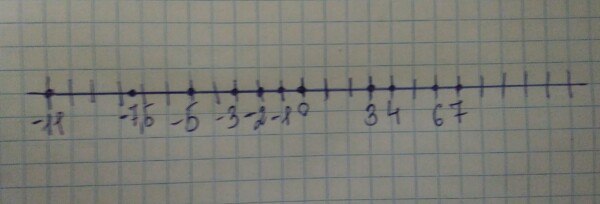 -11 -7,5 -5 -3 -2 -1 0 3 4 6 7